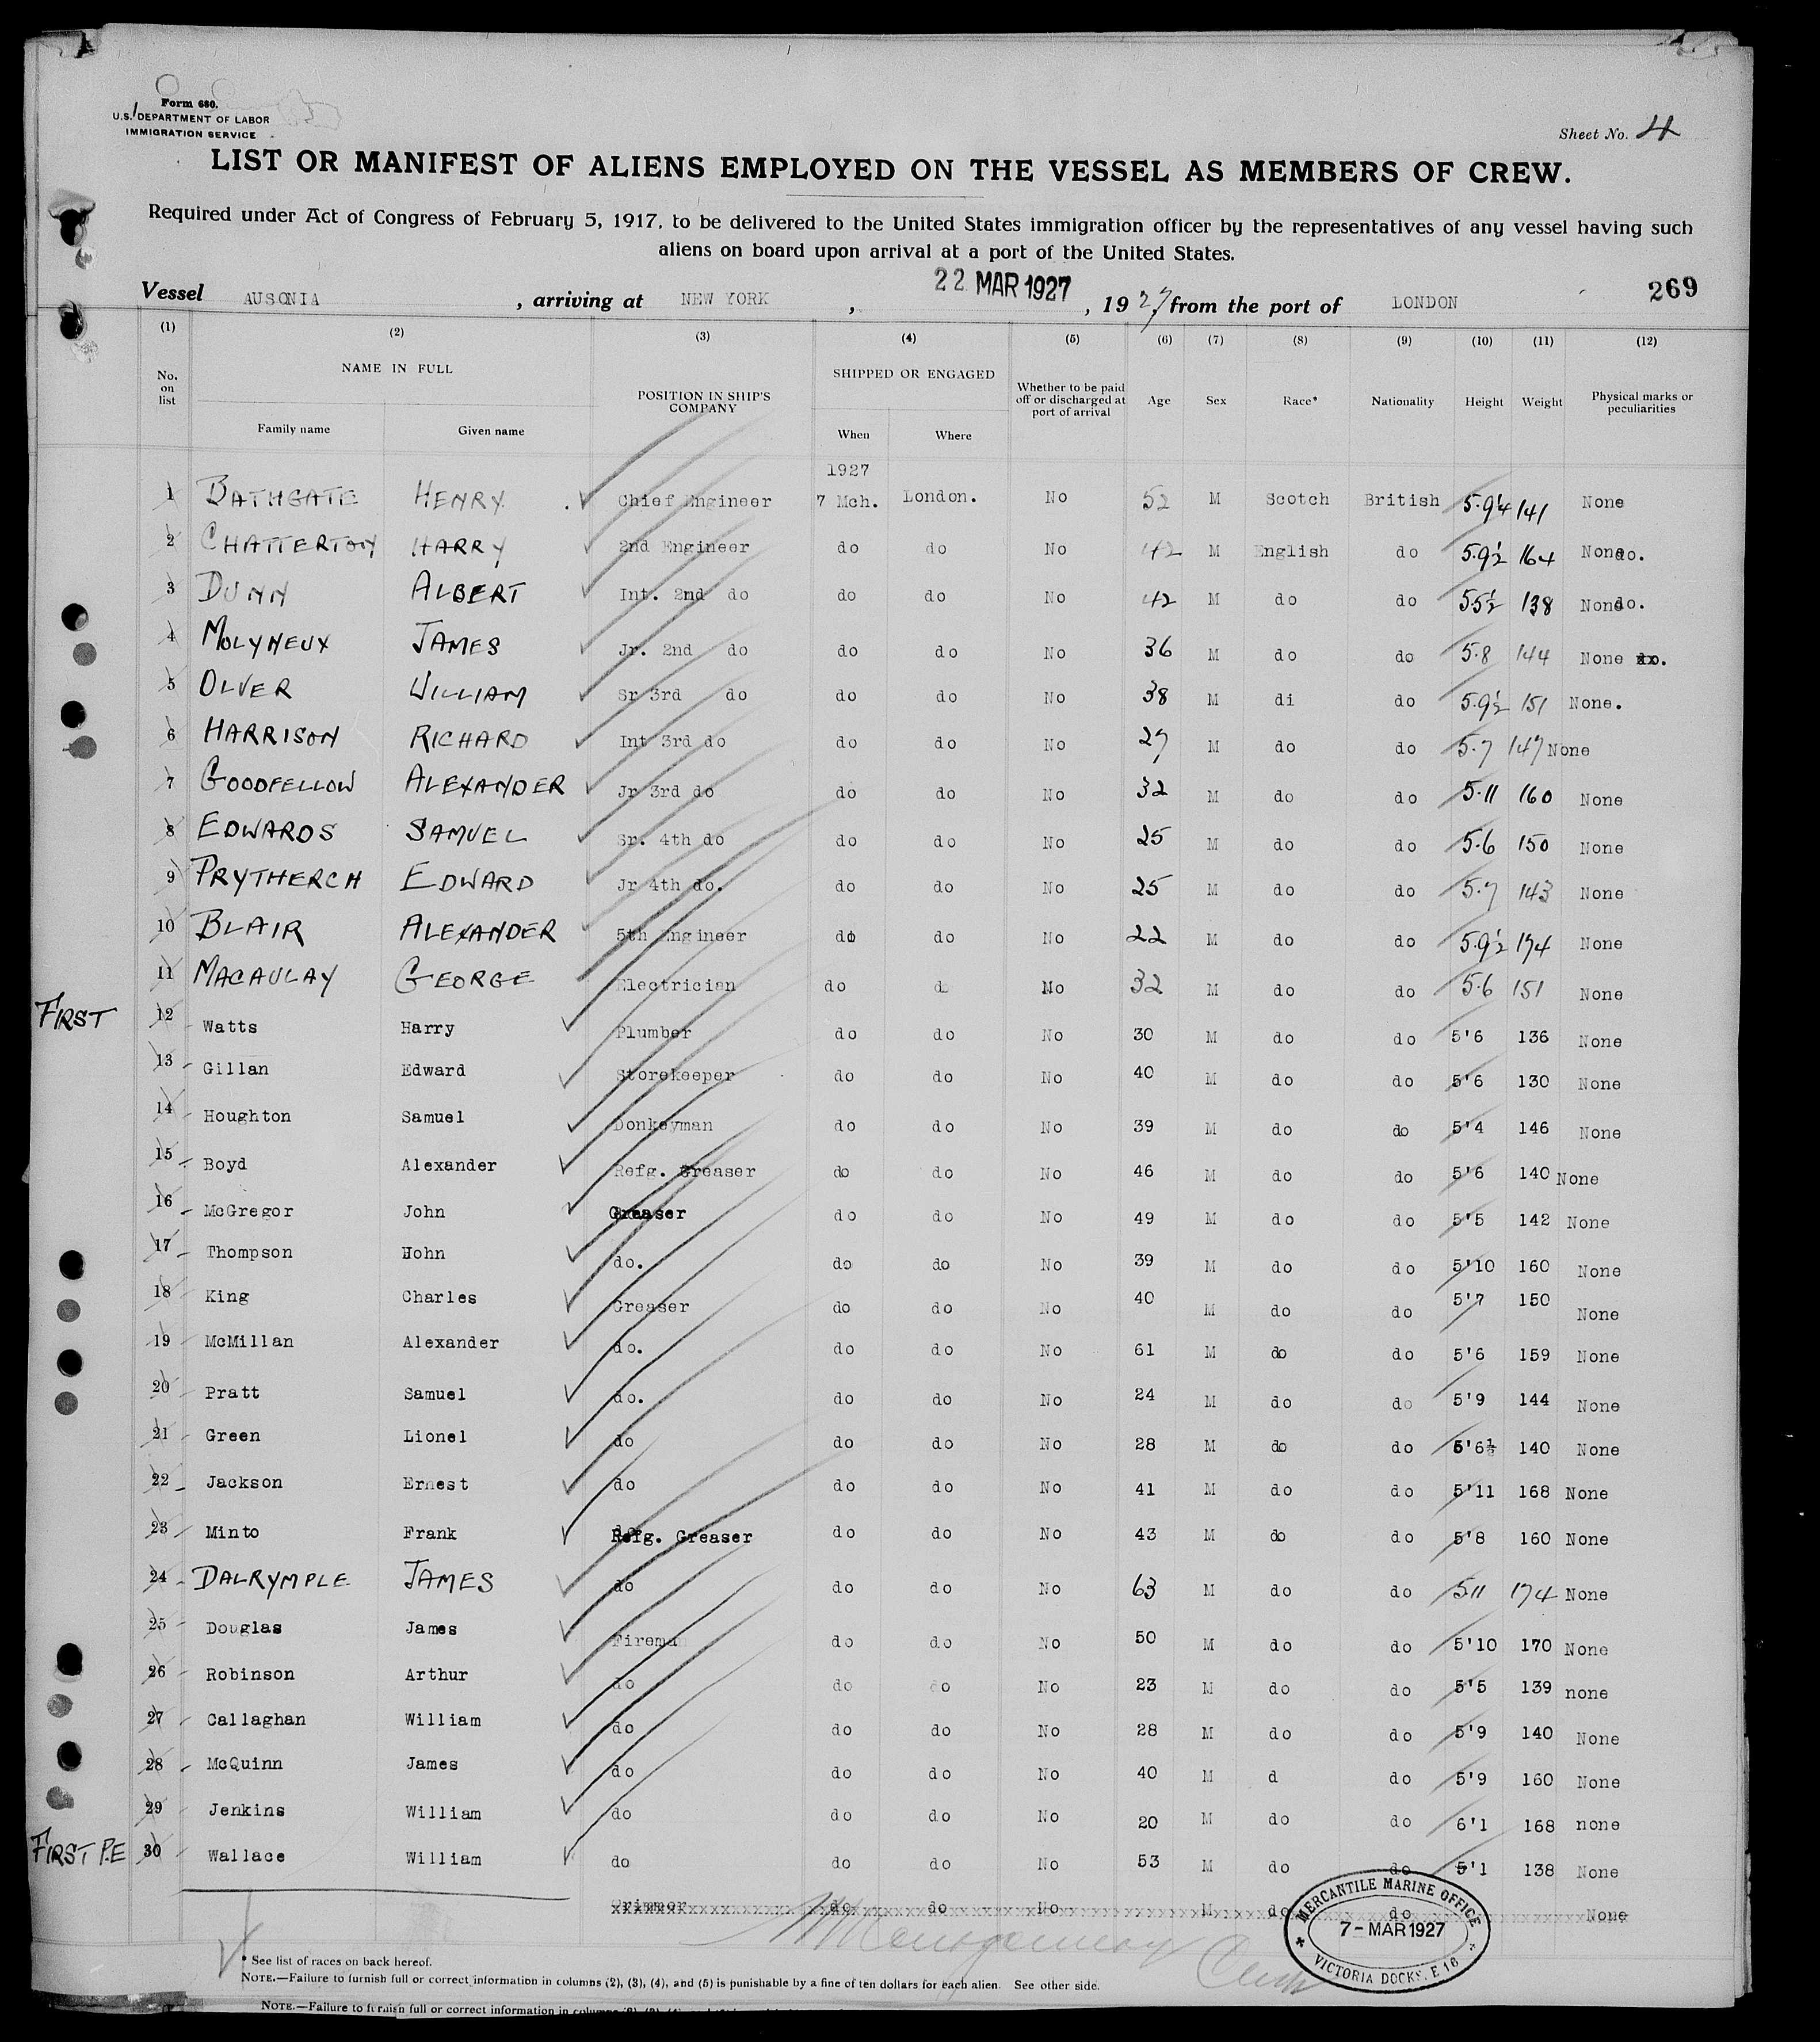 Form 680.
U.S. DEPARTMENT OF LABOR
IMMIGRATION SERVICE
Sheet No. 4
LIST OR MANIFEST OF ALIENS EMPLOYED ON THE VESSEL AS MEMBERS OF CREW.
Required under Act of Congress of February 5, 1917, to be delivered to the United States immigration officer by the representatives of any vessel having such
aliens on board upon arrival at a port of the United States.
Vessel AUSONIA , arriving at NEW YORK , 22 MAR 1927 , 1927 from the port of LONDON 269
(1) (2) (3) (4) (5) (6) (7) (8) (9) (10) (11) (12)
No. on list NAME IN FULL Family name Given name POSITION IN SHIP'S COMPANY SHIPPED OR ENGAGED When Where Whether to be paid off or discharged at port of arrival Age Sex Race* Nationality Height Weight Physical marks or peculiarities
1927
1 BATHGATE HENRY Chief Engineer 7 Mch. London. No 52 M Scotch British 5.9¼ 141 None
2 CHATTERTON HARRY 2nd Engineer do do No 42 M English do 5.9½ 164 None do.
3 DUNN ALBERT Int. 2nd do do do No 42 M do do 5.5½ 138 None do.
4 MOLYNEUX JAMES Jr. 2nd do do do No 36 M do do 5.8 144 None do.
5 OLVER WILLIAM Sr 3rd do do do No 38 M di do 5.9½ 151 None.
6 HARRISON RICHARD Int 3rd do do do No 27 M do do 5.7 147 None
7 GOODFELLOW ALEXANDER Jr 3rd do do do No 32 M do do 5.11 160 None
8 EDWARDS SAMUEL Sr. 4th do do do No 25 M do do 5.6 150 None
9 PRYTHERCH EDWARD Jr 4th do. do do No 25 M do do 5.7 143 None
10 BLAIR ALEXANDER 5th Engineer do do No 22 M do do 5.9½ 174 None
11 MACAULAY GEORGE Electrician do d No 32 M do do 5.6 151 None
FIRST 12 Watts Harry Plumber do do No 30 M do do 5'6 136 None
13 Gillan Edward Storekeeper do do No 40 M do do 5'6 130 None
14 Houghton Samuel Donkeyman do do No 39 M do do 5'4 146 None
15 Boyd Alexander Refg. Greaser do do No 46 M do do 5'6 140 None
16 McGregor John Greaser do do No 49 M do do 5'5 142 None
17 Thompson John do. do do No 39 M do do 5'10 160 None
18 King Charles Greaser do do No 40 M do do 5'7 150 None
19 McMillan Alexander do. do do No 61 M do do 5'6 159 None
20 Pratt Samuel do. do do No 24 M do do 5'9 144 None
21 Green Lionel do do do No 28 M do do 5'6½ 140 None
22 Jackson Ernest do do do No 41 M do do 5'11 168 None
23 Minto Frank Refg. Greaser do do No 43 M do do 5'8 160 None
24 DALRYMPLE JAMES do do do No 63 M do do 5.11 174 None
25 Douglas James Fireman do do No 50 M do do 5'10 170 None
26 Robinson Arthur do do do No 23 M do do 5'5 139 none
27 Callaghan William do do do No 28 M do do 5'9 140 None
28 McQuinn James do do do No 40 M d do 5'9 160 None
29 Jenkins William do do do No 20 M do do 6'1 168 none
FIRST P.E 30 Wallace William do do do No 53 M do do 5'1 138 None
Trimmer do do No M do do None
MERCANTILE MARINE OFFICE
7 - MAR 1927
VICTORIA DOCKS. E 16
* See list of races on back hereof.
NOTE.—Failure to furnish full or correct information in columns (2), (3), (4), and (5) is punishable by a fine of ten dollars for each alien. See other side.
NOTE.—Failure to furnish full or correct information in columns